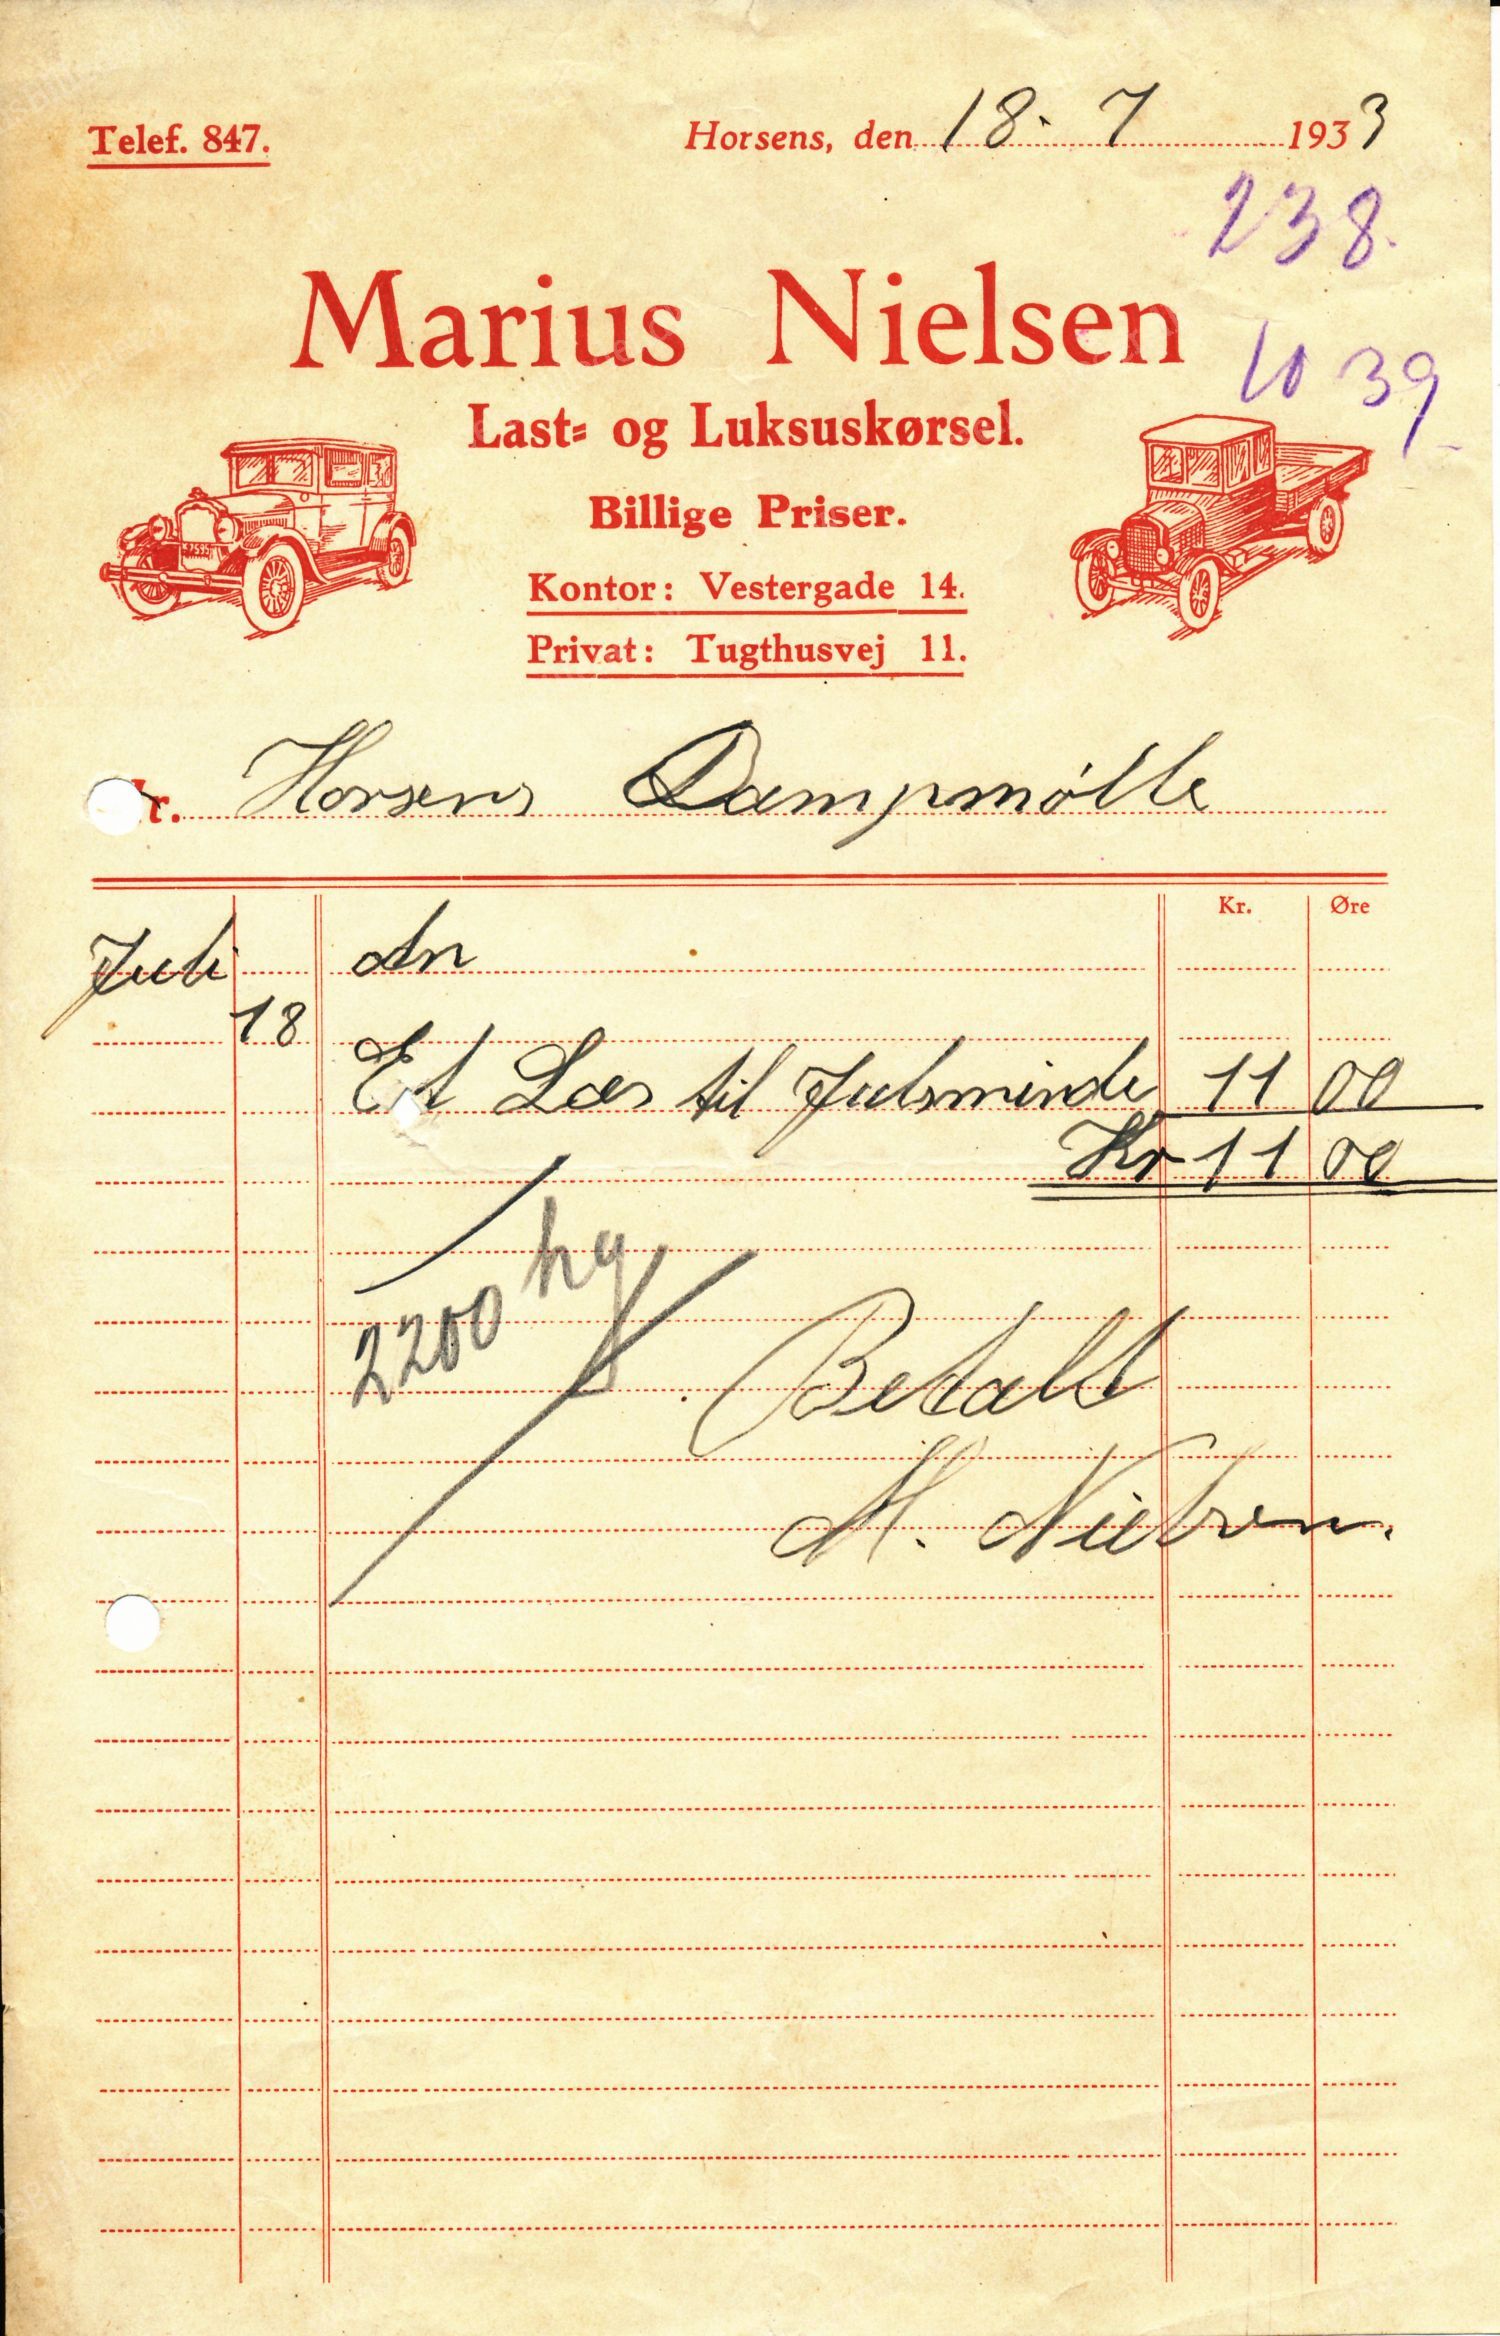 Telef. 847.
Horsens, den 18. 7 1933
238.
1039
Marius Nielsen
Last= og Luksuskørsel.
Billige Priser.
Kontor: Vestergade 14.
Privat: Tugthusvej 11.
Hr. Horsens Dampmølle
Kr. Øre
Juli An
18
Et Læs til Julsminde 11 00
Kr 11 00
2200 kg
Betalt
M. Nielsen.